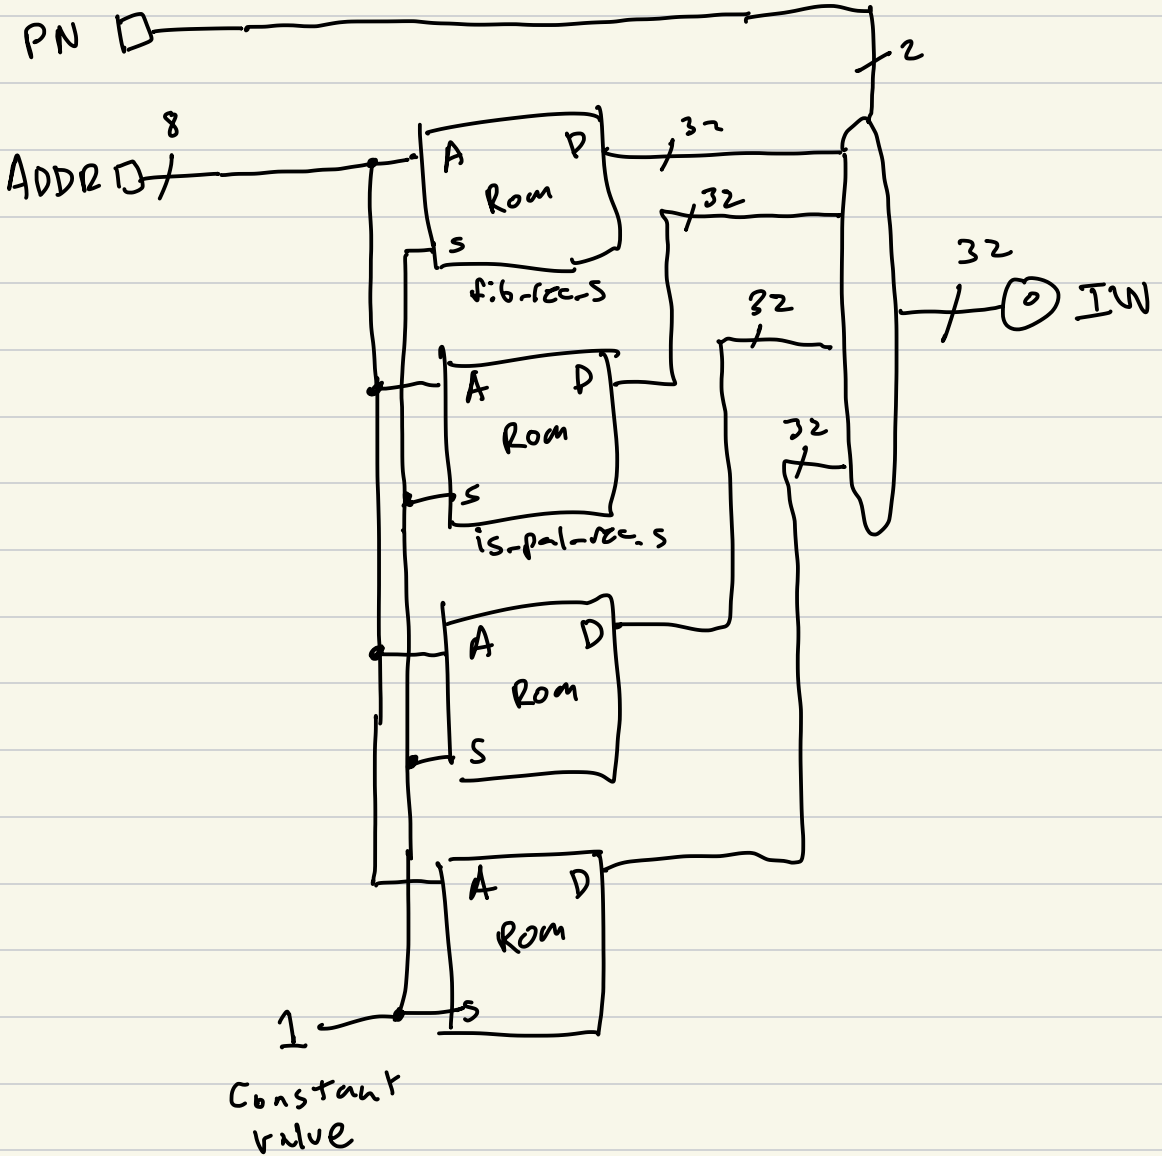 PN
2
8
ADDR
A D
32
ROM
S
fib_rec.s
32
32
IW
A D
32
ROM
S
is_pal_rec.s
32
A D
ROM
S
A D
ROM
S
1
Constant
value